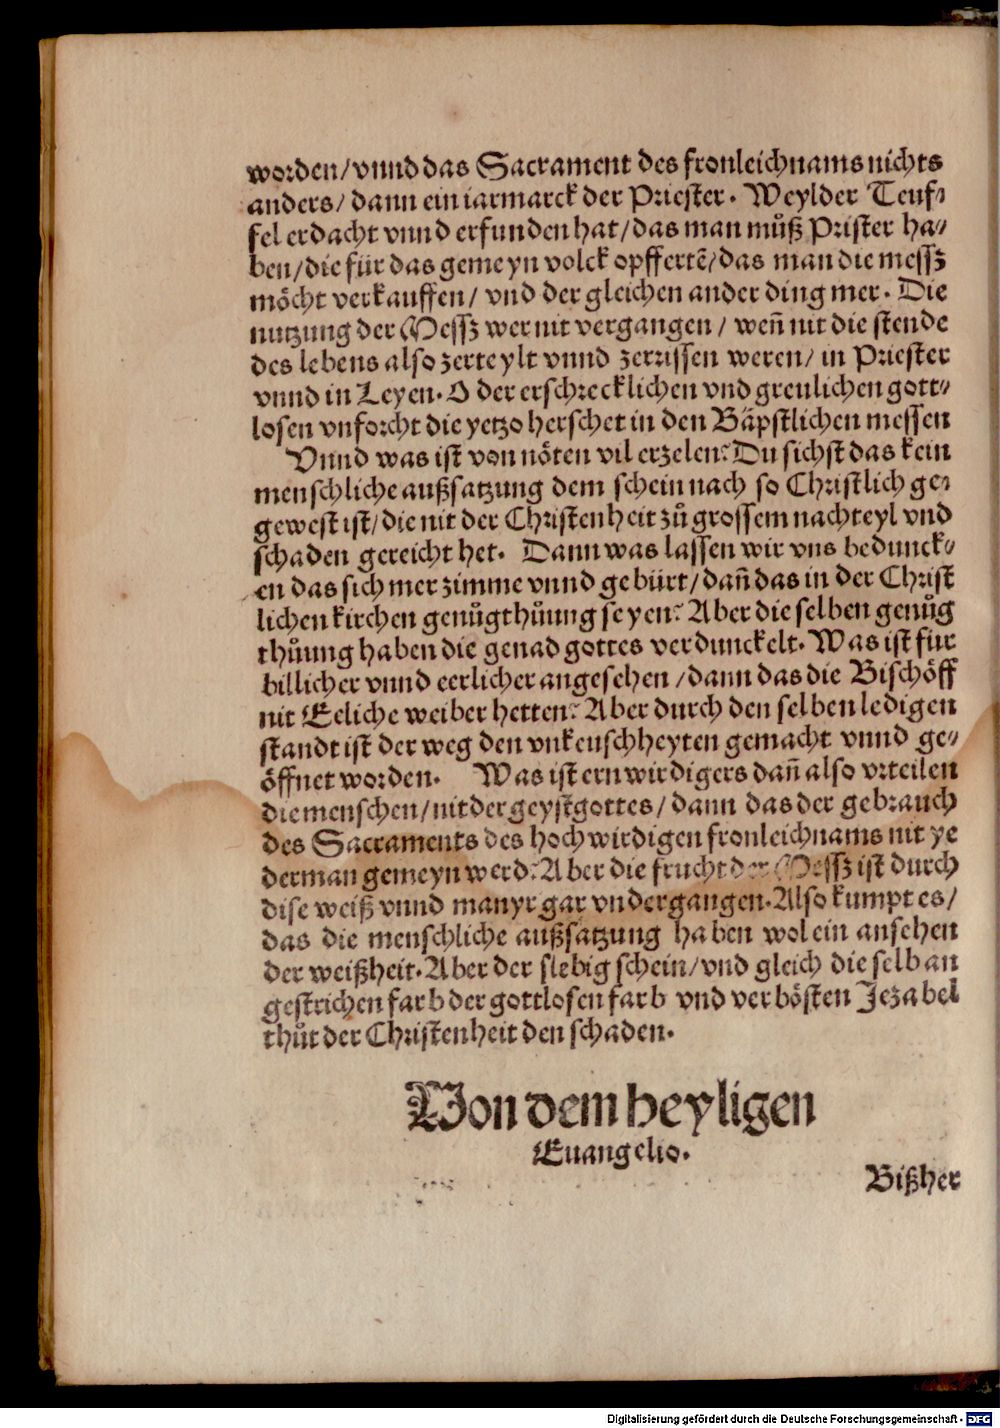 worden/ vnnd das Sacrament des fronleichnams nichts
anders/ dann ein iarmarck der Priester. Weyl der Teuf-
fel erdacht vnnd erfunden hat/ das man můß Prister ha-
ben/ die für das gemeyn volck opffertē/ das man die messz
möcht verkauffen/ vnd der gleichen ander ding mer. Die
nutzung der Messz wer nit vergangen/ weñ nit die stende
des lebens also zerteylt vnnd zerrissen weren/ in Priester
vnnd in Leyen. O der erschrecklichen vnd greulichen gott-
losen vnforcht die yetzo herschet in den Bäpstlichen messen
Vnnd was ist von nöten vil erzelen? Du sichst das kein
menschliche außsatzung dem schein nach so Christlich ge-
gewest ist/ die nit der Christenheit zů grossem nachteyl vnd
schaden gereicht het. Dann was lassen wir vns bedunck-
en das sich mer zimme vnnd gebürt/ dañ das in der Christ
lichen kirchen genůgthůung seyen? Aber die selben genůg
thůung haben die genad gottes verdunckelt. Was ist für
billicher vnnd eerlicher angesehen/ dann das die Bischöff
nit Eeliche weiber hetten? Aber durch den selben ledigen
standt ist der weg den vnkeuschheyten gemacht vnnd ge-
öffnet worden. Was ist ernwirdigers dañ also vrteilen
die menschen/ nit der geyst gottes/ dann das der gebrauch
des Sacraments des hochwirdigen fronleichnams nit ye
derman gemeyn werd? Aber die frucht der Messz ist durch
dise weiß vnnd manyr gar vndergangen. Also kumpt es/
das die menschliche außsatzung haben wol ein ansehen
der weißheit. Aber der slebig schein/ vnd gleich die selb an
gestrichen farb der gottlosen farb vnd verbösten Jezabel
thůt der Christenheit den schaden.
Von dem heyligen
Euangelio.
Bißher
Digitalisierung gefördert durch die Deutsche Forschungsgemeinschaft - DFG